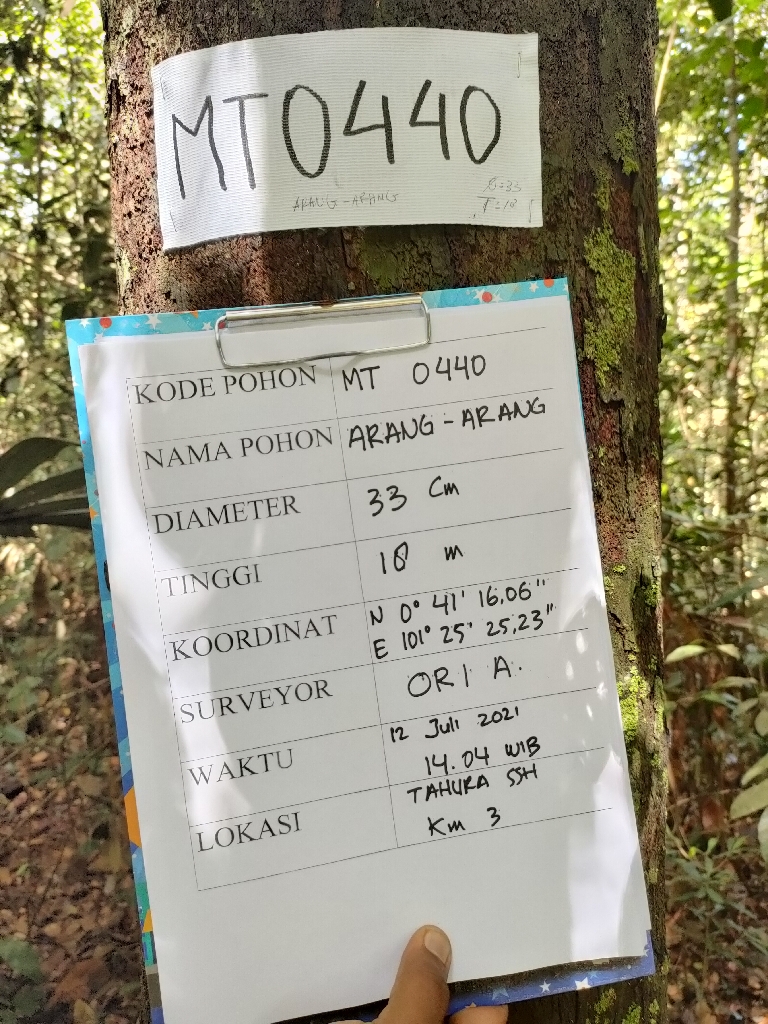 MT0440
ARANG-ARANG
T=18
KODE POHON MT 0440
NAMA POHON ARANG-ARANG
DIAMETER 33 Cm
TINGGI 18 m
KOORDINAT N 0° 41' 16,06"
E 101° 25' 25,23"
SURVEYOR ORI A.
WAKTU 12 Juli 2021
14.04 WIB
LOKASI TAHURA SSH
Km 3